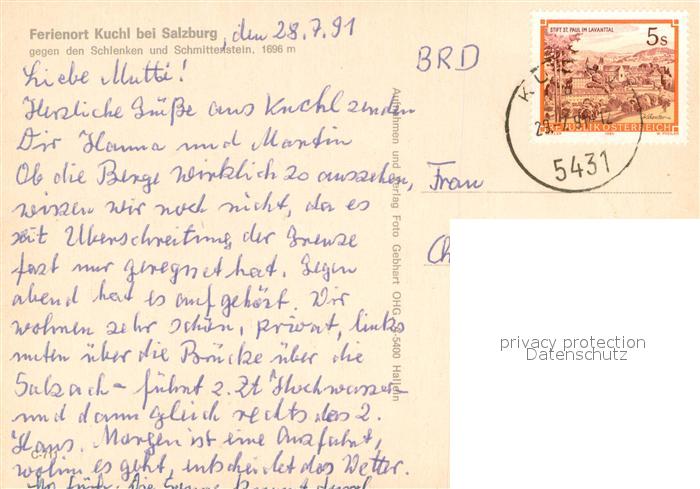 Ferienort Kuchl bei Salzburg
gegen den Schlenken und Schmittenstein, 1696 m
, den 28.7.91
BRD
STIFT ST. PAUL IM LAVANTTAL
5s
REPUBLIK ÖSTERREICH
5431
Liebe Mutti!
Herzliche Grüße aus Kuchl senden
Dir Hanna und Martin
Ob die Berge wirklich so aussehen,
wissen wir noch nicht, da es
seit Überschreitung der Grenze
fast nur geregnet hat. Gegen
abend hat es aufgehört. Wir
wohnen sehr schön, privat, links
unten über die Brücke über die
Salzach - führt z. Zt Hochwasser -
und dann gleich rechts das 2.
Haus. Morgen ist eine Ausfahrt,
wohin es geht, entscheidet das Wetter.
Frau
Ch
Aufnahmen und Verlag Foto Gebhart OHG A-5400 Hallein
C 711
privacy protection
Datenschutz